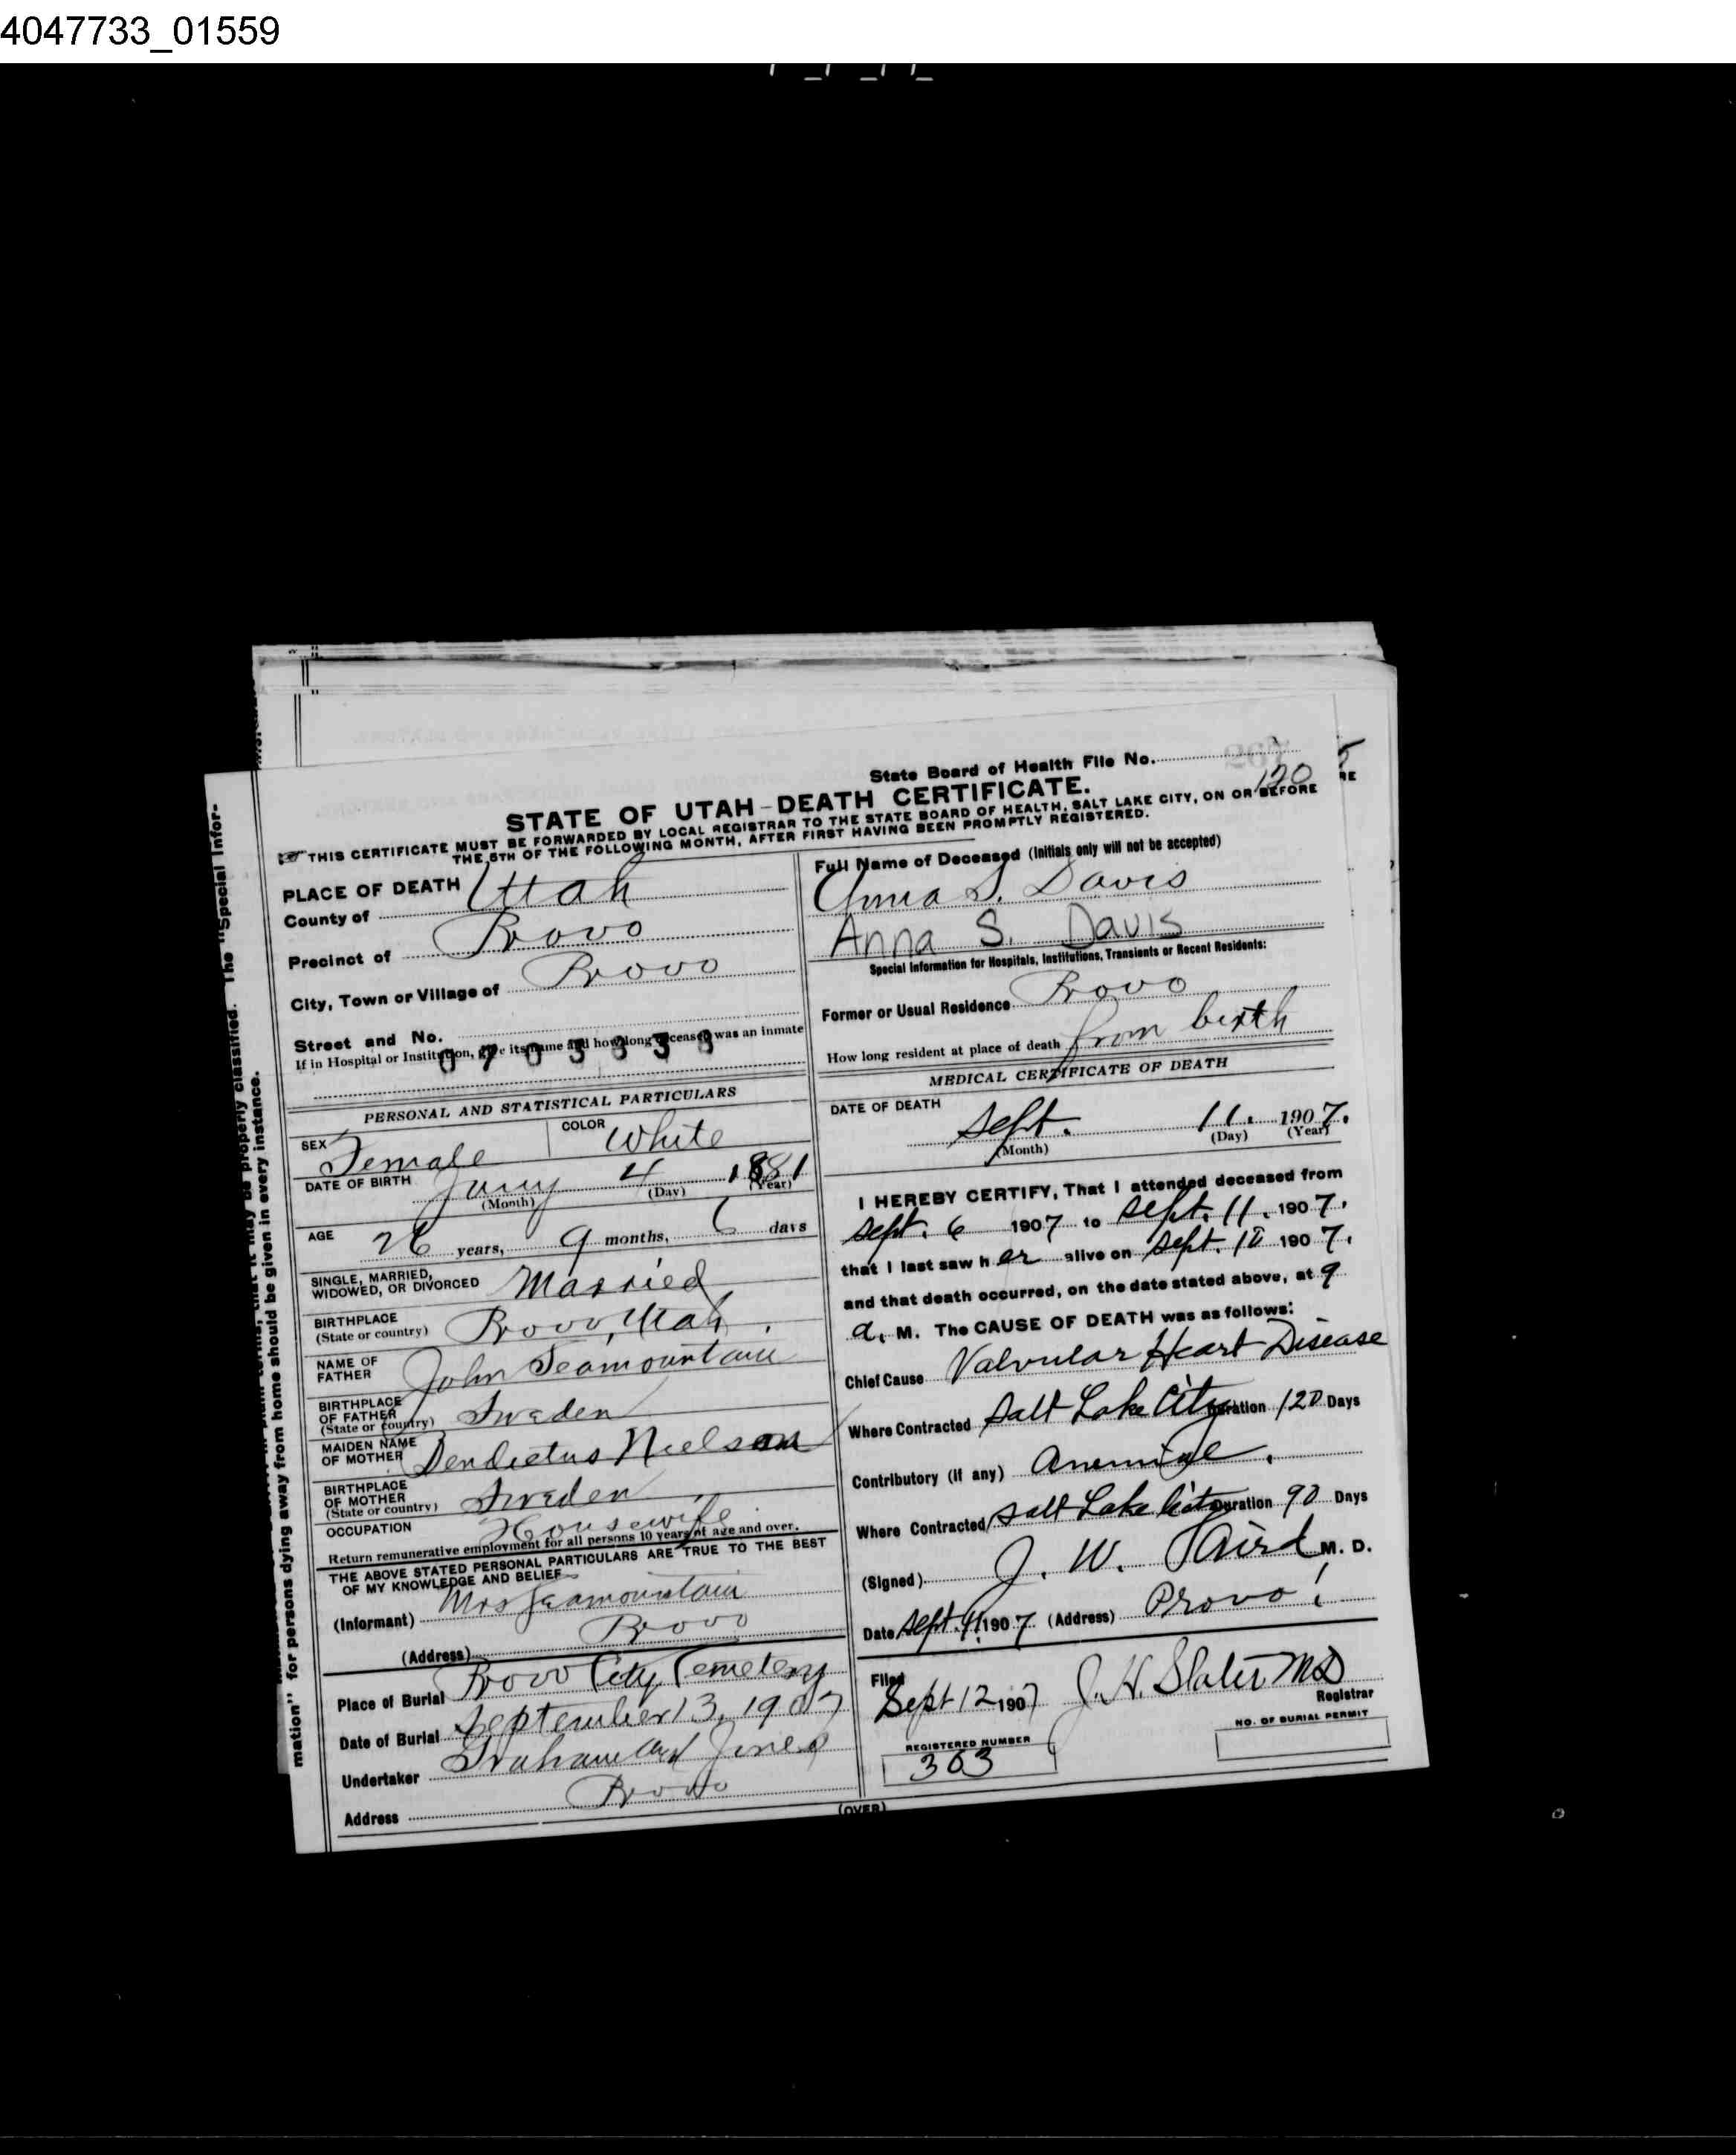 4047733_01559
State Board of Health File No.
120
STATE OF UTAH-DEATH CERTIFICATE.
THIS CERTIFICATE MUST BE FORWARDED BY LOCAL REGISTRAR TO THE STATE BOARD OF HEALTH, SALT LAKE CITY, ON OR BEFORE
THE 5TH OF THE FOLLOWING MONTH, AFTER FIRST HAVING BEEN PROMPTLY REGISTERED.
PLACE OF DEATH
County of Utah
Precinct of Provo
City, Town or Village of Provo
Street and No.
If in Hospital or Institution, give its name and how long deceased was an inmate
PERSONAL AND STATISTICAL PARTICULARS
SEX Female COLOR White
DATE OF BIRTH Jany 4 1881
(Month) (Day) (Year)
AGE 26 years, 9 months, 6 days
SINGLE, MARRIED, WIDOWED, OR DIVORCED Married
BIRTHPLACE (State or country) Provo, Utah.
NAME OF FATHER John Seamountain
BIRTHPLACE OF FATHER (State or country) Sweden
MAIDEN NAME OF MOTHER Nielson
BIRTHPLACE OF MOTHER (State or country) Sweden
OCCUPATION Housewife
Return remunerative employment for all persons 10 years of age and over.
THE ABOVE STATED PERSONAL PARTICULARS ARE TRUE TO THE BEST
OF MY KNOWLEDGE AND BELIEF
(Informant) Mrs Seamountain
(Address) Provo
Place of Burial Provo City Cemetery
Date of Burial September 13, 1907
Undertaker Graham and Jones
Address Provo
Full Name of Deceased (Initials only will not be accepted)
Anna S. Davis
Anna S. Davis
Special Information for Hospitals, Institutions, Transients or Recent Residents:
Former or Usual Residence Provo
How long resident at place of death from birth
MEDICAL CERTIFICATE OF DEATH
DATE OF DEATH
Sept. 11. 1907.
(Month) (Day) (Year)
I HEREBY CERTIFY, That I attended deceased from
Sept. 6 1907 to Sept. 11. 1907.
that I last saw her alive on Sept. 10 1907.
and that death occurred, on the date stated above, at 9
a. M. The CAUSE OF DEATH was as follows:
Chief Cause Valvular Heart Disease
Where Contracted Salt Lake City Duration 120 Days
Contributory (if any)
Where Contracted Salt Lake City Duration 90 Days
(Signed) J. W. Aird M. D.
Date Sept. 11 1907 (Address) Provo
Filed
Sept 12 1907 J. H. Slater MD
Registrar
REGISTERED NUMBER
363
NO. OF BURIAL PERMIT
(OVER)
mation" for persons dying away from home should be given in every instance.
properly classified. The "Special Infor-